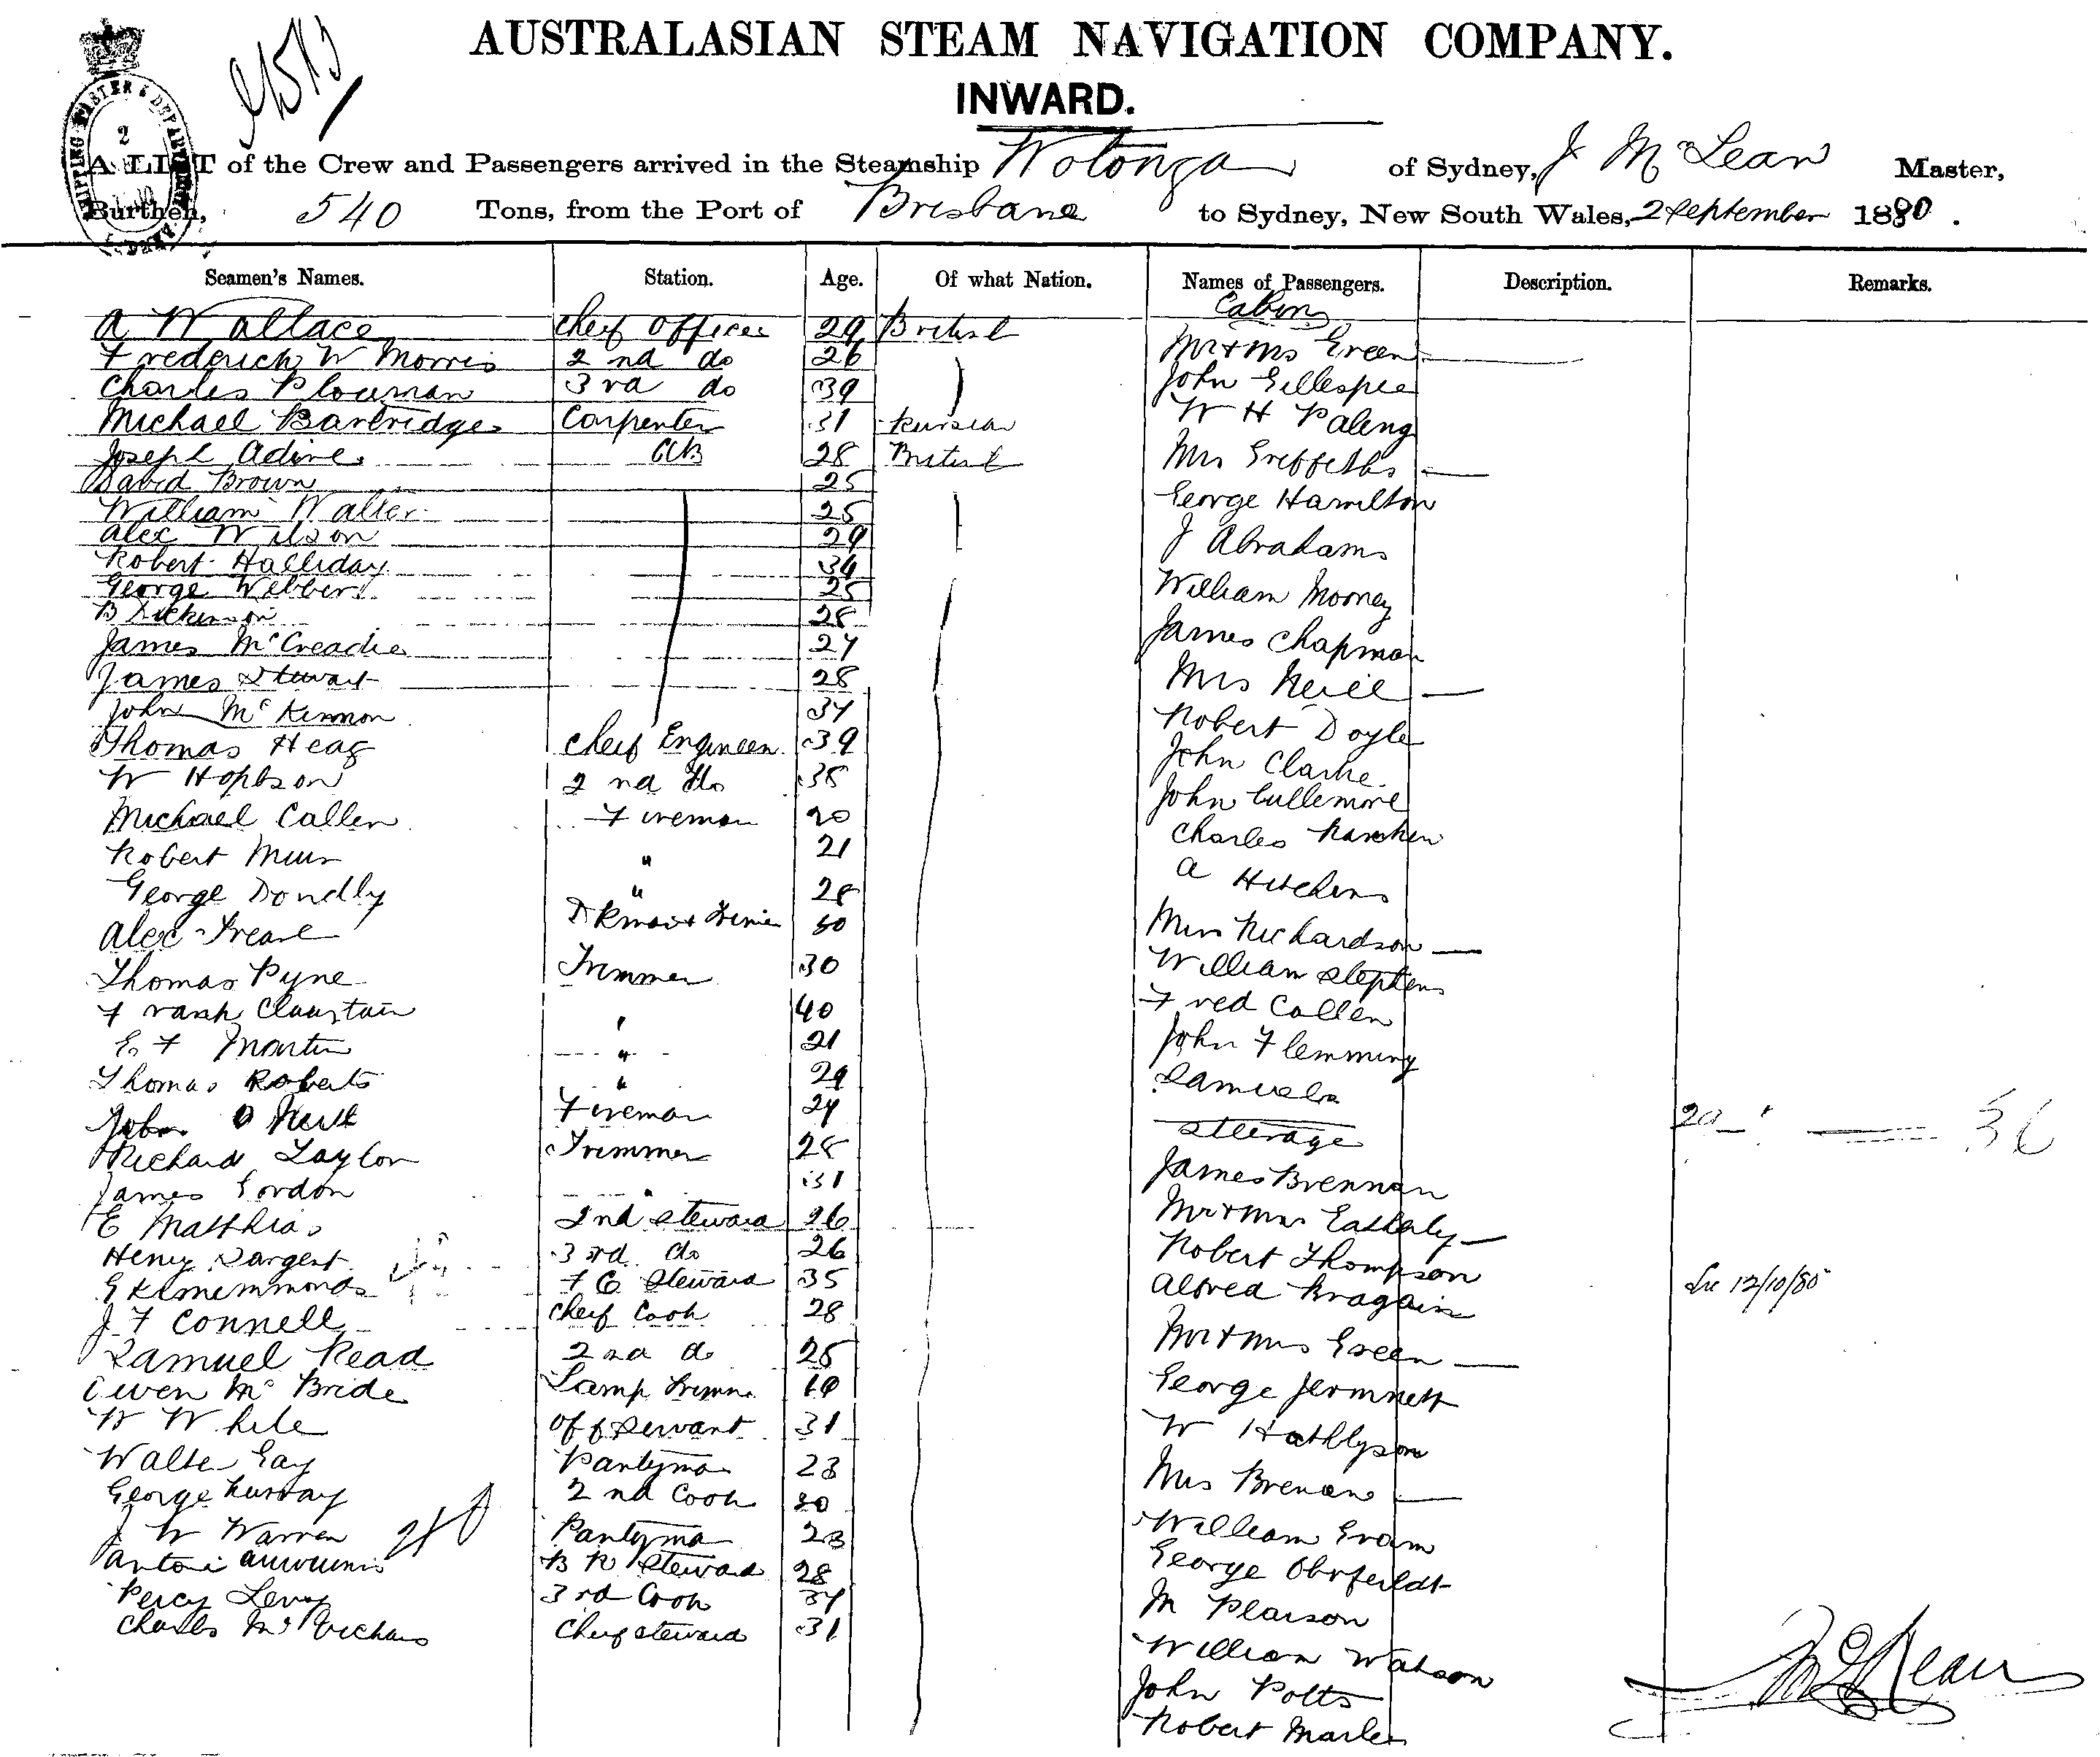 AUSTRALASIAN STEAM NAVIGATION COMPANY.
INWARD.
A LIST of the Crew and Passengers arrived in the Steamship Wotonga of Sydney, J McLean Master,
Burthen, 540 Tons, from the Port of Brisbane to Sydney, New South Wales, 2 September 1880.
Seamen's Names. Station. Age. Of what Nation. Names of Passengers. Description. Remarks.
Cabin
A Wallace Cheif Officer 29 British
Frederick W Morris 2nd do 26 Mr & Mrs Green
Charles Plowman 3rd do 39 John Gillespie
Michael Bartridge Carpenter 31 Russian W H Paling
Joseph Adine AB 28 British Mrs Griffiths
David Brown 25 George Hamilton
William Walter 25
Alec Wilson 29 J Abrahams
Robert Halliday 34
George Webber 25 William Mooney
B Dickinson 28
James McCreadie 27 James Chapman
James Stewart 28 Mrs Neill
John McKinnon 37 Robert Doyle
Thomas Heag Cheif Engineer 39 John Clarke
W Hopbson 2nd do 38 John Cullemore
Michael Callen Fireman 20 Charles
Robert Muir " 21 A Hitchens
George Dondly " 28
Alec 30 Miss Richardson
Thomas Pyne Trimmer 30 William Stephens
Frank 40 Fred Callen
E. F Martin " 21 John Flemming
Thomas Roberts " 29 Samuels
John O Neill Fireman 24 Steerage
Richard Taylor Trimmer 28 James Brennan
James Gordon " 31 Mr & Mrs Easterly
E Matthias 2nd Steward 26 Robert Thompson
Henry Sargent 3rd do 26 Alfred
Steward 35 12/10/80
J. F Connell Cheif Cook 28 Mr & Mrs Green
Samuel Read 2nd do 25
Owen McBride Lamp Trimmr 19 George
W White Off Servant 31 W
Walter Gay Pantryman 23 Mrs Brenan
George Murray 2nd Cook 30 William Evans
J W Warren Pantryma 23
Antoni B R Steward 28 George Ohrfeildt
Percy Levey 3rd Cook M Pearson
Charles Cheif Steward 31 William Watson
John Potts
Robert Marler
McLean